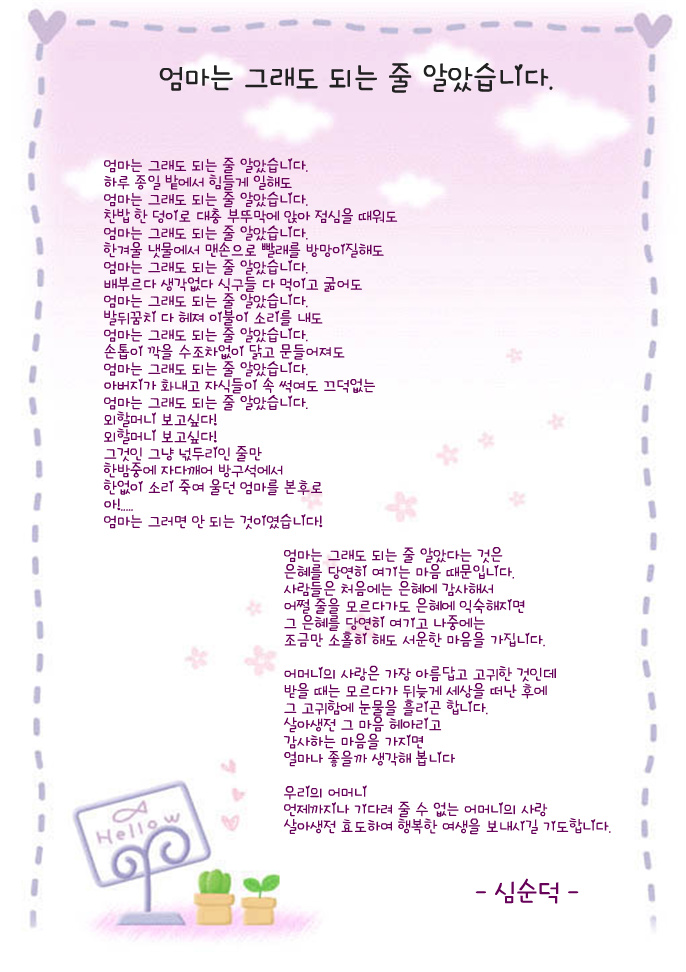 엄마는 그래도 되는 줄 알았습니다.
엄마는 그래도 되는 줄 알았습니다.
하루 종일 밭에서 힘들게 일해도
엄마는 그래도 되는 줄 알았습니다.
찬밥 한 덩이로 대충 부뚜막에 앉아 점심을 때워도
엄마는 그래도 되는 줄 알았습니다.
한겨울 냇물에서 맨손으로 빨래를 방망이질해도
엄마는 그래도 되는 줄 알았습니다.
배부르다 생각없다 식구들 다 먹이고 굶어도
엄마는 그래도 되는 줄 알았습니다.
발뒤꿈치 다 헤져 이불이 소리를 내도
엄마는 그래도 되는 줄 알았습니다.
손톱이 깍을 수조차없이 닳고 문들어져도
엄마는 그래도 되는 줄 알았습니다.
아버지가 화내고 자식들이 속 썩여도 끄덕없는
엄마는 그래도 되는 줄 알았습니다.
외할머니 보고싶다!
외할머니 보고싶다!
그것인 그냥 넋두리인 줄만
한밤중에 자다깨어 방구석에서
한없이 소리 죽여 울던 엄마를 본후로
아!.....
엄마는 그러면 안 되는 것이였습니다!
엄마는 그래도 되는 줄 알았다는 것은
은혜를 당연히 여기는 마음 때문입니다.
사람들은 처음에는 은혜에 감사해서
어쩔 줄을 모르다가도 은혜에 익숙해지면
그 은혜를 당연히 여기고 나중에는
조금만 소홀히 해도 서운한 마음을 가집니다.
어머니의 사랑은 가장 아름답고 고귀한 것인데
받을 때는 모르다가 뒤늦게 세상을 떠난 후에
그 고귀함에 눈물을 흘리곤 합니다.
살아생전 그 마음 헤아리고
감사하는 마음을 가지면
얼마나 좋을까 생각해 봅니다
우리의 어머니
언제까지나 기다려 줄 수 없는 어머니의 사랑
살아생전 효도하여 행복한 여생을 보내시길 기도합니다.
Hellow
- 심순덕 -